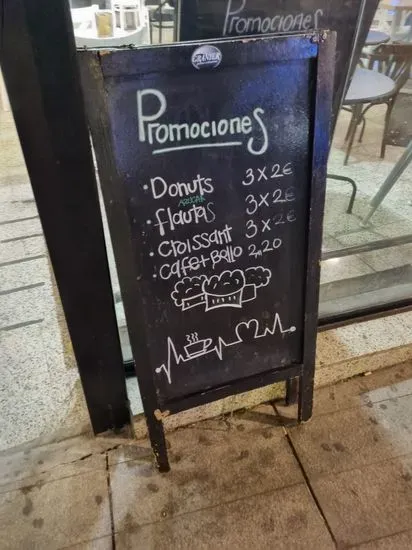 Promociones
GRANIER
Promociones
• Donuts 3x2€
AZUCAR
• flautas 3x2€
• Croissant 3x2€
• Cafe+Bollo 2,20